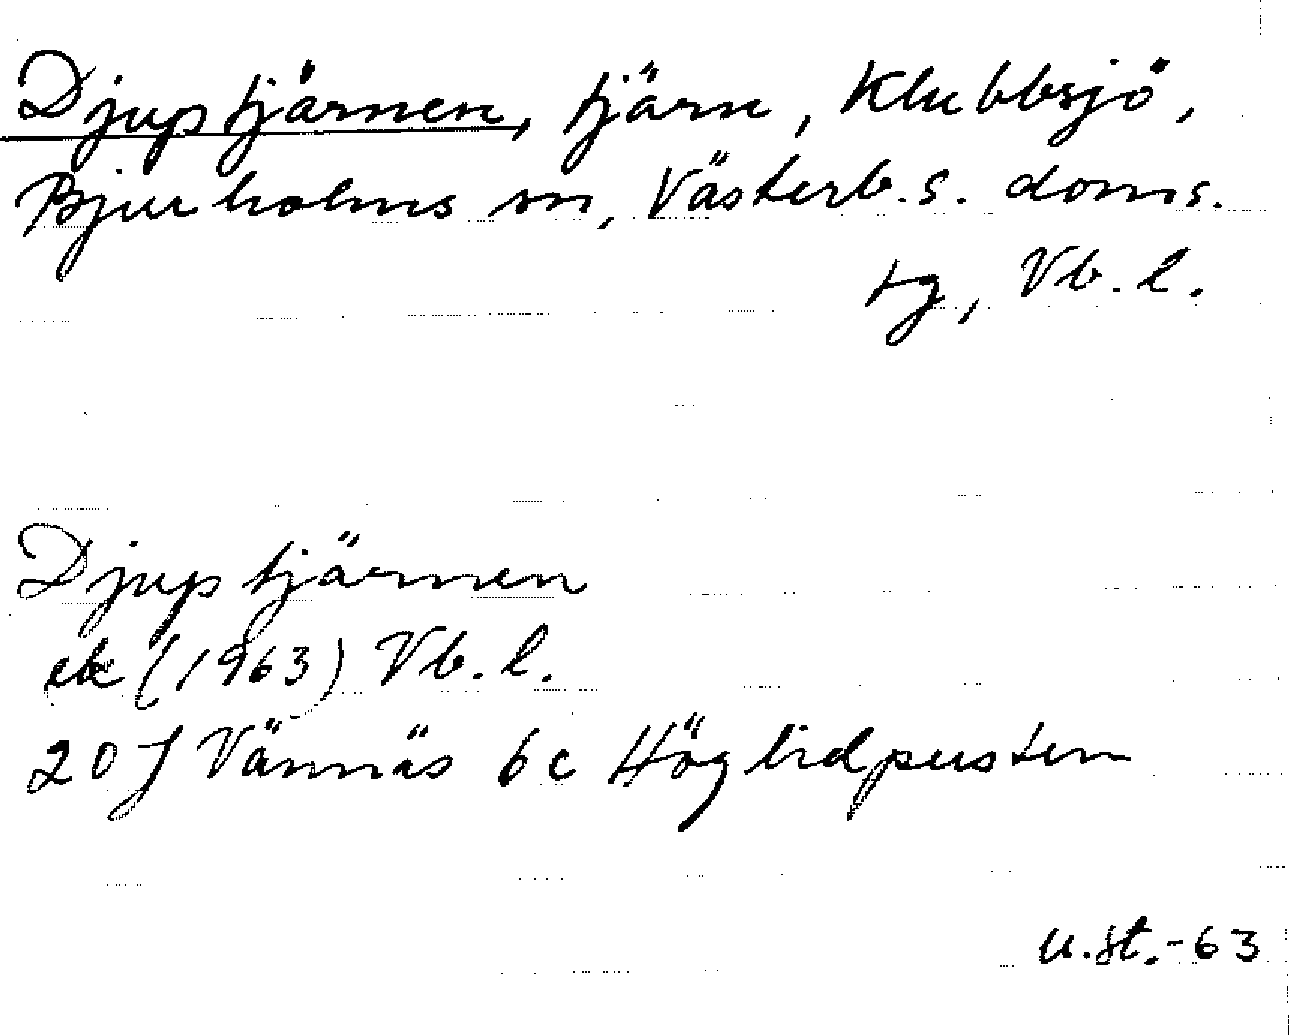 Djuptjärnen, tjärn, Klubbsjö,
Bjurholms sn, Västerb.s. doms.
tg, Vb. l.
Djuptjärnen
ek (1963) Vb. l.
20 J Vännäs 6c Höglidpusten
u.st.-63